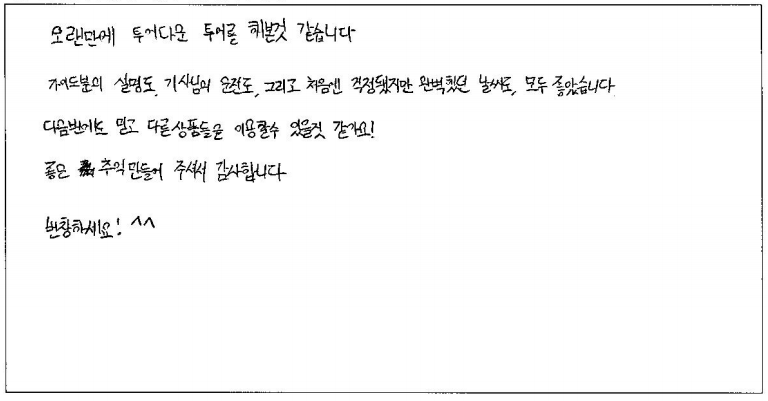 오랜만에 투어다운 투어를 해본것 같습니다
가이드분의 설명도, 기사님의 운전도, 그리고 처음엔 걱정됐지만 완벽했던 날씨도, 모두 좋았습니다
다음번에도 믿고 다른상품들을 이용할수 있을것 같아요!
좋은 추억만들어 주셔서 감사합니다
번창하세요! ^^